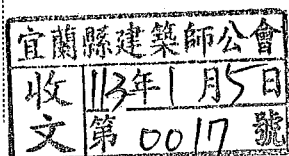 宜蘭縣建築師公會
收文 113年1月5日
第0017號